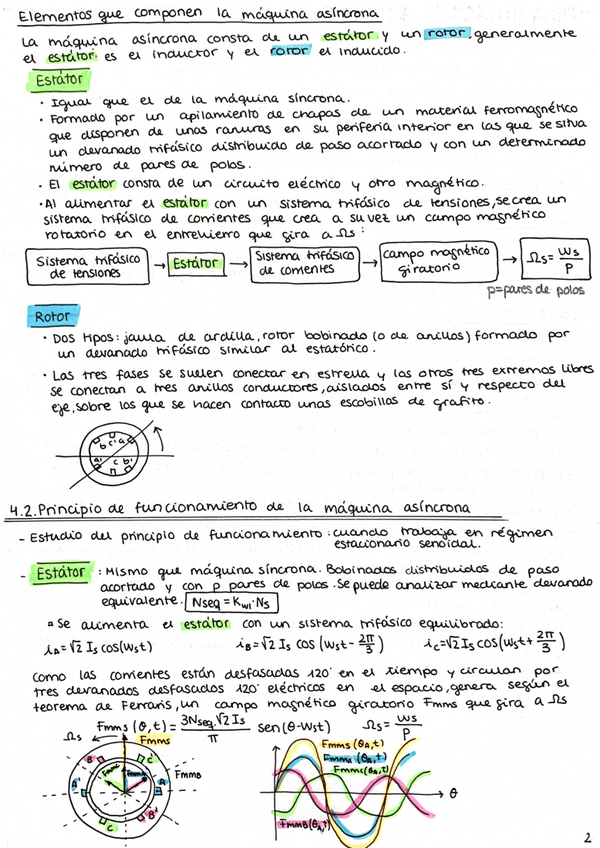 Elementos que componen la máquina asíncrona
La máquina asíncrona consta de un estátor y un rotor, generalmente
el estátor es el inductor y el rotor el inducido.
Estátor
· Igual que el de la máquina síncrona.
· Formado por un apilamiento de chapas de un material ferromagnético
que disponen de unas ranuras en su periferia interior en las que se situa
un devanado trifásico distribuido de paso acortado y con un determinado
número de pares de polos.
· El estátor consta de un circuito eléctrico y otro magnético.
· Al alimentar el estátor con un sistema trifásico de tensiones, se crea un
sistema trifásico de corrientes que crea a su vez un campo magnético
rotatorio en el entrehierro que gira a Ωs :
Sistema trifásico de tensiones → Estátor → Sistema trifásico de corrientes → campo magnético giratorio → Ωs = ws/p
p=pares de polos
Rotor
· Dos tipos: jaula de ardilla, rotor bobinado (o de anillos) formado por
un devanado trifásico similar al estatórico.
· Las tres fases se suelen conectar en estrella y las otros tres extremos libres
se conectan a tres anillos conductores, aislados entre sí y respecto del
eje, sobre los que se hacen contacto unas escobillas de grafito.
b c' a
a' c b'
4.2. Principio de funcionamiento de la máquina asíncrona
- Estudio del principio de funcionamiento: cuando trabaja en régimen
estacionario senoidal.
- Estátor : Mismo que máquina síncrona. Bobinados distribuidos de paso
acortado y con p pares de polos. Se puede analizar mediante devanado
equivalente. Nseq = Kw1·Ns
▫ Se alimenta el estátor con un sistema trifásico equilibrado:
iA=√2 Is cos(wst) iB=√2 Is cos (wst - 2π/3) ic=√2 Is cos (wst + 2π/3)
Como las corrientes están desfasadas 120° en el tiempo y circulan por
tres devanados desfasados 120° eléctricos en el espacio, genera según el
teorema de Ferraris, un campo magnético giratorio Fmms que gira a Ωs
Fmms (θ,t) = 3Nseq·√2 Is/π sen(θ-wst) Ωs = ws/p
Ωs Fmms
B C'
A' A
C B'
FmmB
Fmms (θA,t)
FmmA (θA,t)
Fmmc (θA,t)
θ
FmmB (θA,t)
2